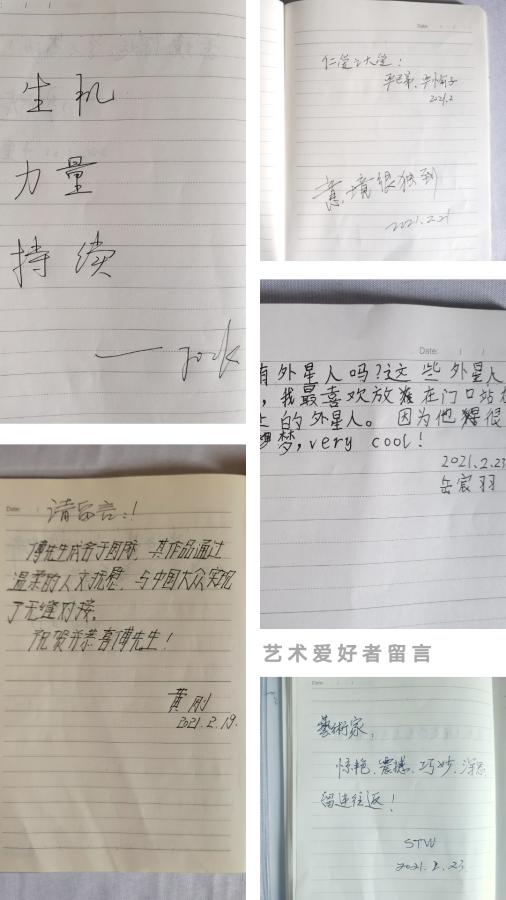 生机
力量
持续
—— Jock
Date:
2021.2
意境很独到
2021.2.21
Date:
有外星人吗?这些外星人
,我最喜欢放在门口站在
的外星人。因为他很
梦,very cool!
2021.2.23
岳宸羽
Date:
请留言:!
傅先生成名于国际,其作品通过
温柔的人文抚慰,与中国大众实现
了无缝对接。
祝贺并恭喜傅先生!
黄刚
2021.2.19.
艺术爱好者留言
Date:
藝術家,
惊艳、震撼、巧妙、
留连往返!
STW
2021.2.23